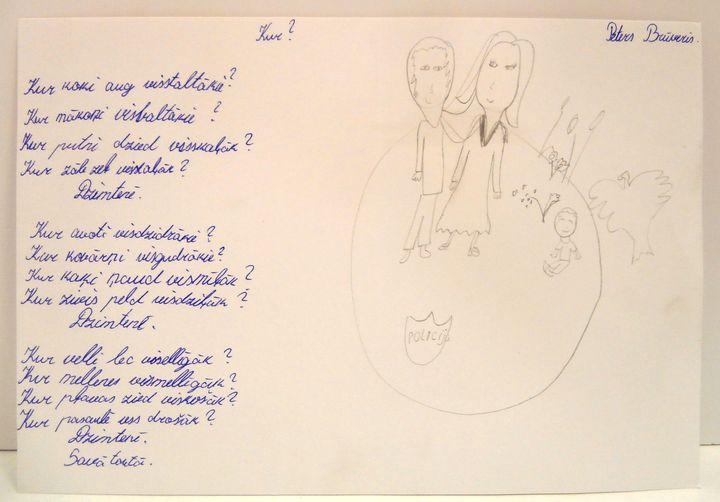 Kur?
Pēters Brūveris.
Kur koki aug visstaltākie?
Kur mākoņi visbaltākie?
Kur putni dzied visskaļāk?
Kur zāle zeļ viszaļāk?
Dzimtenē.
Kur avoti visdzidrākie?
Kur kovārņi visgudrākie?
Kur kaķi ņaud vismīļāk?
Kur zivis peld visdziļāk?
Dzimtenē.
Kur velli lec visellīgāk?
Kur mellenes vismellīgāk?
Kur pļavas zied viskošāk?
Kur pasaulē viss drošāk?
Dzimtenē.
Savā tautā.
POLICIJA